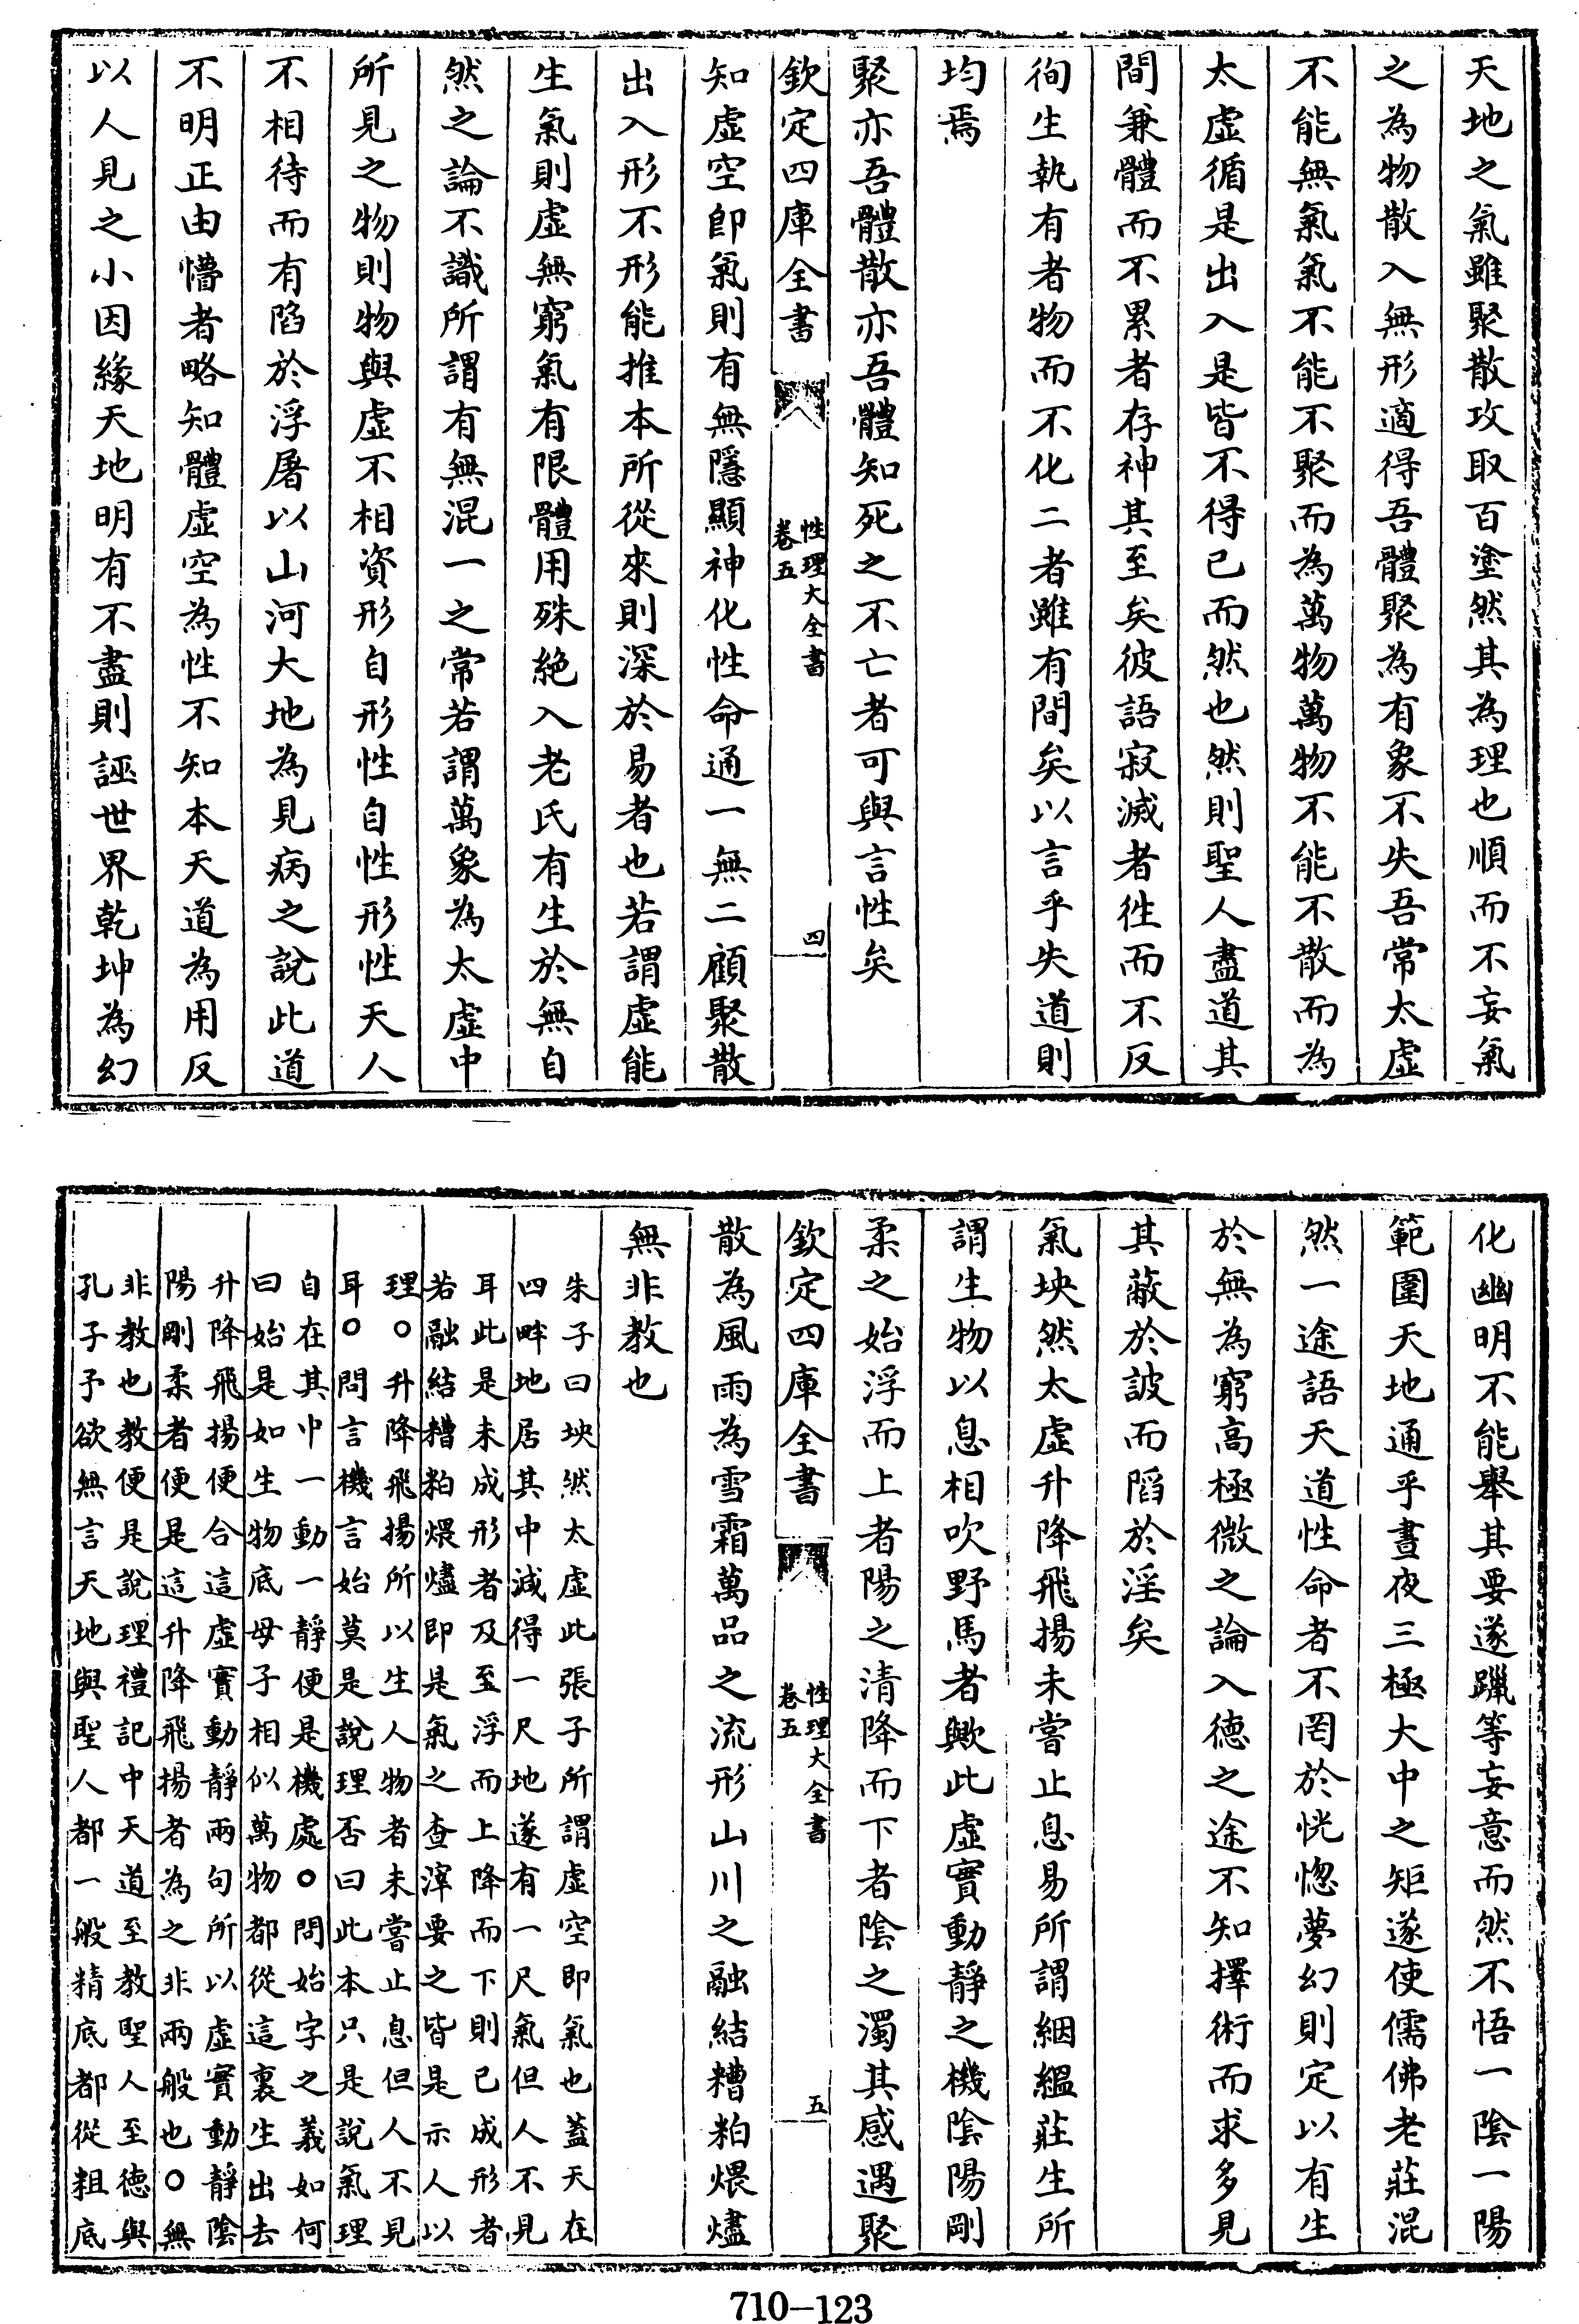 天地之氣雖聚散攻取百塗然其為理也順而不妄氣
之為物散入無形適得吾體聚為有象不失吾常太虛
不能無氣氣不能不聚而為萬物萬物不能不散而為
太虛循是出入是皆不得已而然也然則聖人盡道其
間兼體而不累者存神其至矣彼語寂滅者徃而不反
徇生執有者物而不化二者雖有間矣以言乎失道則
均焉
聚亦吾體散亦吾體知死之不亡者可與言性矣
欽定四庫全書
性理大全書
卷五
四
知虛空即氣則有無隱顯神化性命通一無二顧聚散
出入形不形能推本所從來則深於易者也若謂虛能
生氣則虛無窮氣有限體用殊絶入老氏有生於無自
然之論不識所謂有無混一之常若謂萬象為太虛中
所見之物則物與虛不相資形自形性自性形性天人
不相待而有陷於浮屠以山河大地為見病之說此道
不明正由懵者略知體虛空為性不知本天道為用反
以人見之小因緣天地明有不盡則誣世界乾坤為幻
化幽明不能舉其要遂躐等妄意而然不悟一陰一陽
範圍天地通乎晝夜三極大中之矩遂使儒佛老莊混
然一途語天道性命者不罔於恍惚夢幻則定以有生
於無為窮高極微之論入德之途不知擇術而求多見
其蔽於詖而䧟於淫矣
氣坱然太虛升降飛揚未嘗止息易所謂絪緼莊生所
謂生物以息相吹野馬者歟此虛實動靜之機陰陽剛
柔之始浮而上者陽之清降而下者陰之濁其感遇聚
欽定四庫全書
性理大全書
卷五
五
散為風雨為雪霜萬品之流形山川之融結糟粕煨燼
無非教也
朱子曰坱然太虛此張子所謂虛空即氣也蓋天在
四畔地居其中減得一尺地遂有一尺氣但人不見
耳此是未成形者及至浮而上降而下則已成形者
若融結糟粕煨燼即是氣之查滓要之皆是示人以
理○升降飛揚所以生人物者未嘗止息但人不見
耳○問言機言始莫是說理否曰此本只是說氣理
自在其中一動一靜便是機處○問始字之義如何
曰始是如生物底母子相似萬物都從這裏生出去
升降飛揚便合這虛實動靜兩句所以虛實動靜陰
陽剛柔者便是這升降飛揚者為之非兩般也○無
非教也教便是說理禮記中天道至教聖人至德與
孔子予欲無言天地與聖人都一般精底都從粗底
710-123